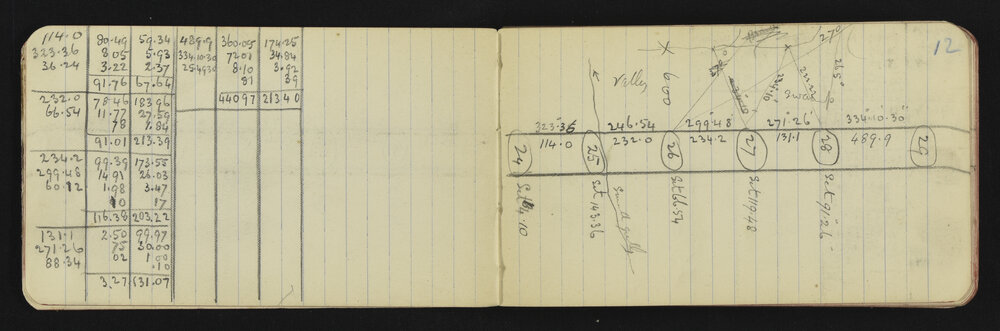 114.0 80.49 59.34 489.9 360.05 174.25
323.36 8.05 5.93 334.10.30 72.01 34.84
36.24 3.22 2.37 25.49.30 8.10 3.92
91.76 67.64 81 39
440 97 213 40
232.0 78.46 183.96
66.54 11.77 27.59
78 1.84
91.01 213.39
234.2 99.39 173.55
299.48 14 91 26.03
60.12 1.98 3.47
10 17
116.38 203.22
131.1 2.50 99.97
271.26 75 30.00
88.34 02 1.00
.10
3.27 131.07
12
270°
265°
Valley
600
Swamp
323.36 246.54 299°48' 271°26' 334°10'30"
114.0 232.0 234.2 131.1 489.9
24 25 26 27 28 29
Set 143.36
Small gully
Set 66.54
Set 119.48
Set 91°26'